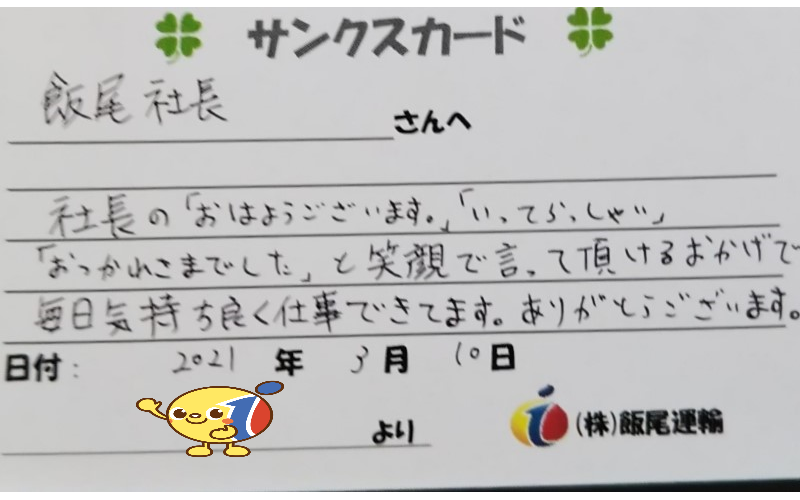 サンクスカード
飯尾 社長
さんへ
社長の「おはようございます。」「いってらっしゃい」
「おつかれさまでした」と笑顔で言って頂けるおかげで
毎日気持ち良く仕事できてます。ありがとうございます。
日付: 2021 年 3月 10日
より
(株)飯尾運輸